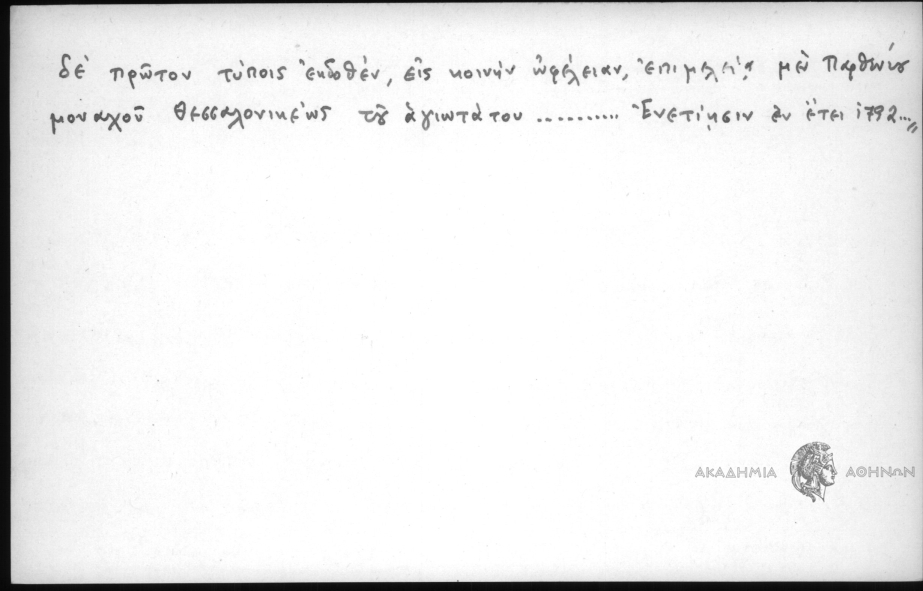 δὲ πρῶτον τύποις ἐκδοθέν, εἰς κοινὴν ὠφέλειαν, ἐπιμελείᾳ μὲν Παρθενίου
μοναχοῦ Θεσσαλονικέως τοῦ ἁγιωτάτου .......... Ἐνετίησιν ἐν ἔτει 1792...„
ΑΚΑΔΗΜΙΑ ΑΘΗΝΩΝ